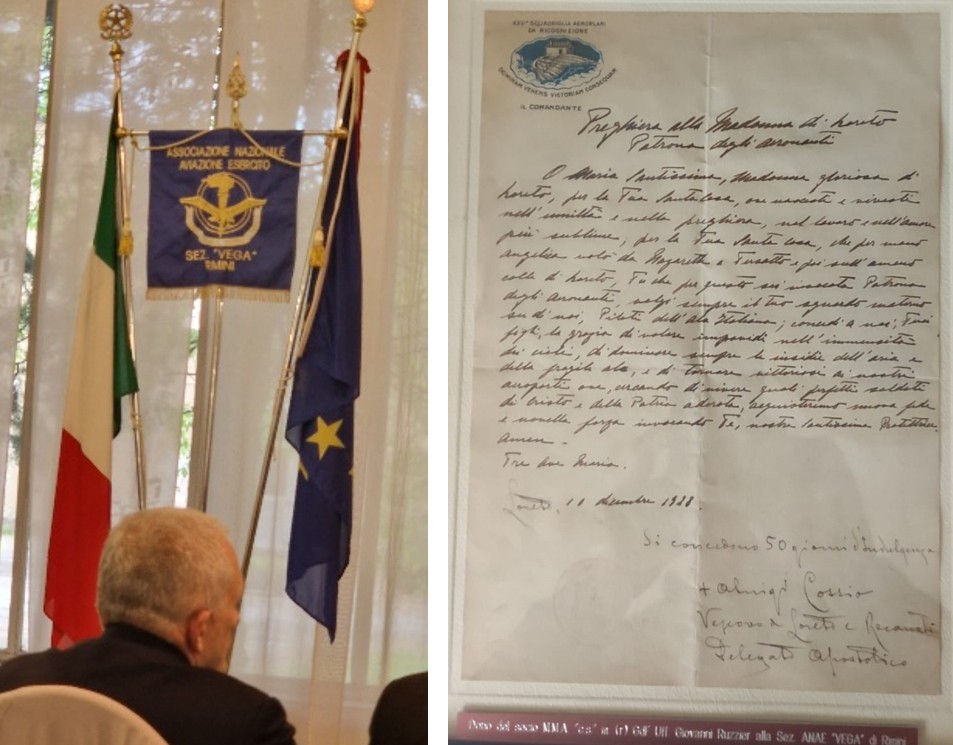 ASSOCIAZIONE NAZIONALE
AVIAZIONE ESERCITO
SEZ. "VEGA"
RIMINI
XXIIIª SQUADRIGLIA AEROPLANI
DA RICOGNIZIONE
VICTORIAM CONSEQUAR
IL COMANDANTE
Preghiera alla Madonna di Loreto
Patrona degli Aeronauti
O Maria Santissima, Madonna gloriosa di
Loreto, per la Tua Santa Casa, ove nasceste e viveste
nell'umiltà e nella preghiera, nel lavoro e nell'amore
più sublime, per la Tua Santa Casa, che per mano
angelica volò da Nazareth a Tersatto e poi sull'ameno
colle di Loreto, Tu che per questo sei invocata Patrona
degli Aeronauti, volgi sempre il tuo sguardo materno
su di noi, Piloti dell'Ala Italiana; concedi a noi, Tuoi
figli, la grazia di volare impavidi nell'immensità
dei cieli, di dominare sempre le insidie dell'aria e
della fragile ala, e di tornare vittoriosi ai nostri
aeroporti ove, cercando di vivere quali perfetti soldati
di Cristo e della Patria adorata, acquisteremo nuova fede
e novella forza invocando Te, nostra Santissima Protettrice.
Amen -
Tre Ave Maria.
Loreto, 10 dicembre 1928.
Si concedono 50 giorni d'Indulgenza
+ Aluigi Cossio
Vescovo di Loreto e Recanati
Delegato Apostolico
Dono del socio M.M.A. "c.s" in (r) Gdf Uff. Giovanni Ruzzier alla Sez. ANAE "VEGA" di Rimini